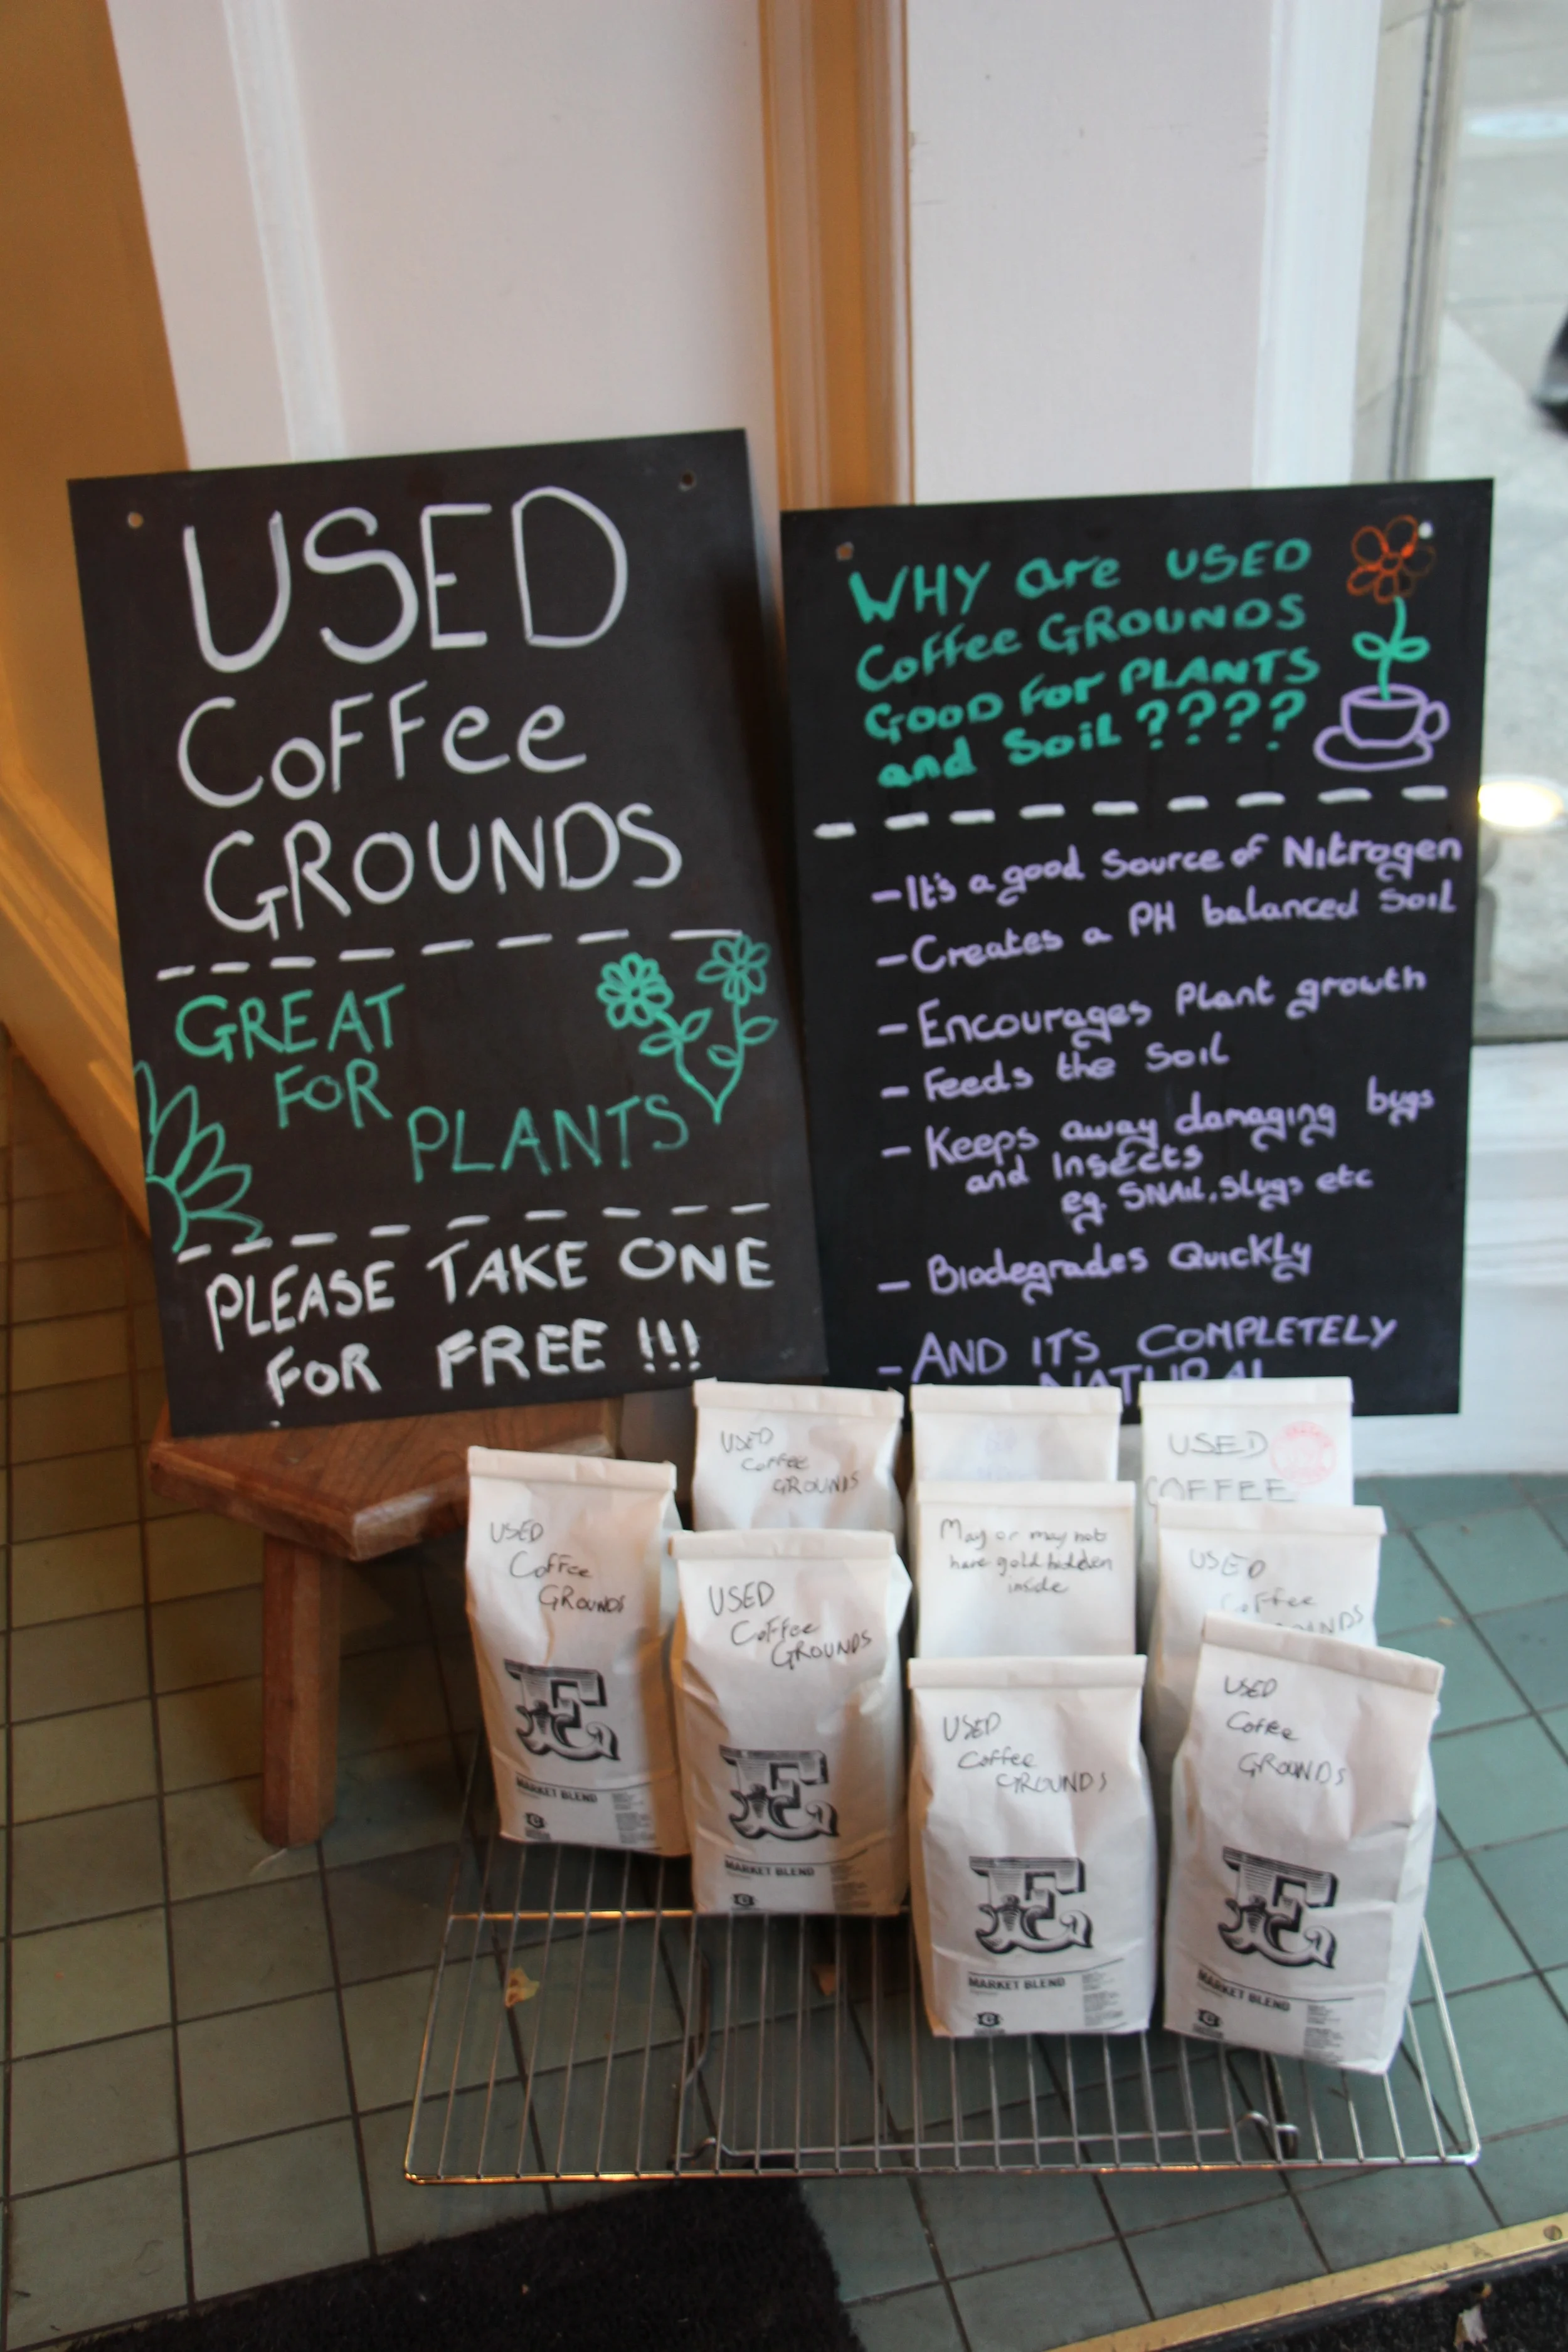 USED
Coffee
GROUNDS
GREAT
FOR
PLANTS
PLEASE TAKE ONE
FOR FREE !!!
WHY are USED
Coffee GROUNDS
GOOD FOR PLANTS
and Soil ????
- It's a good Source of Nitrogen
- Creates a PH balanced Soil
- Encourages Plant growth
- Feeds the Soil
- Keeps away damaging bugs
and Insects
eg. SNAil, Slugs etc
- Biodegrades Quickly
- AND ITS COMPLETELY
NATURAL
USED
Coffee
GROUNDS
USED
COFFEE
USED
Coffee
GROUNDS
E
MARKET BLEND
USED
Coffee
GROUNDS
E
MARKET BLEND
May or may not
have gold hidden
inside
USED
Coffee
USED
Coffee
GROUNDS
E
MARKET BLEND
USED
Coffee
GROUNDS
E
MARKET BLEND